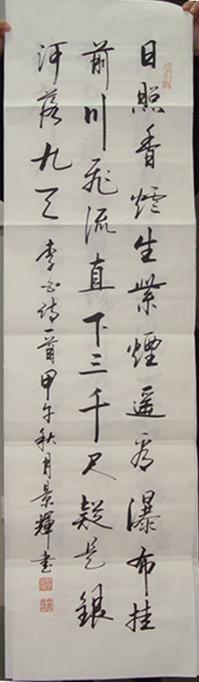 日照香炉生紫煙遥看瀑布挂
前川飛流直下三千尺疑是銀
河落九天 李白詩一首甲午秋月景輝書